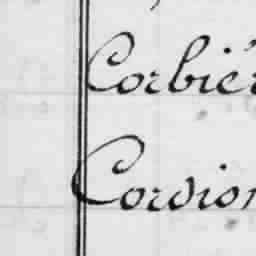 Corbiér
Cordion